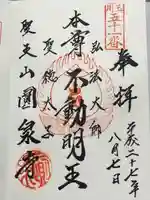 奉拝
平成二十七年
八月七日
五十一番
弘法大師
本尊不動明王
聖徳太子
聖天山圓泉寺